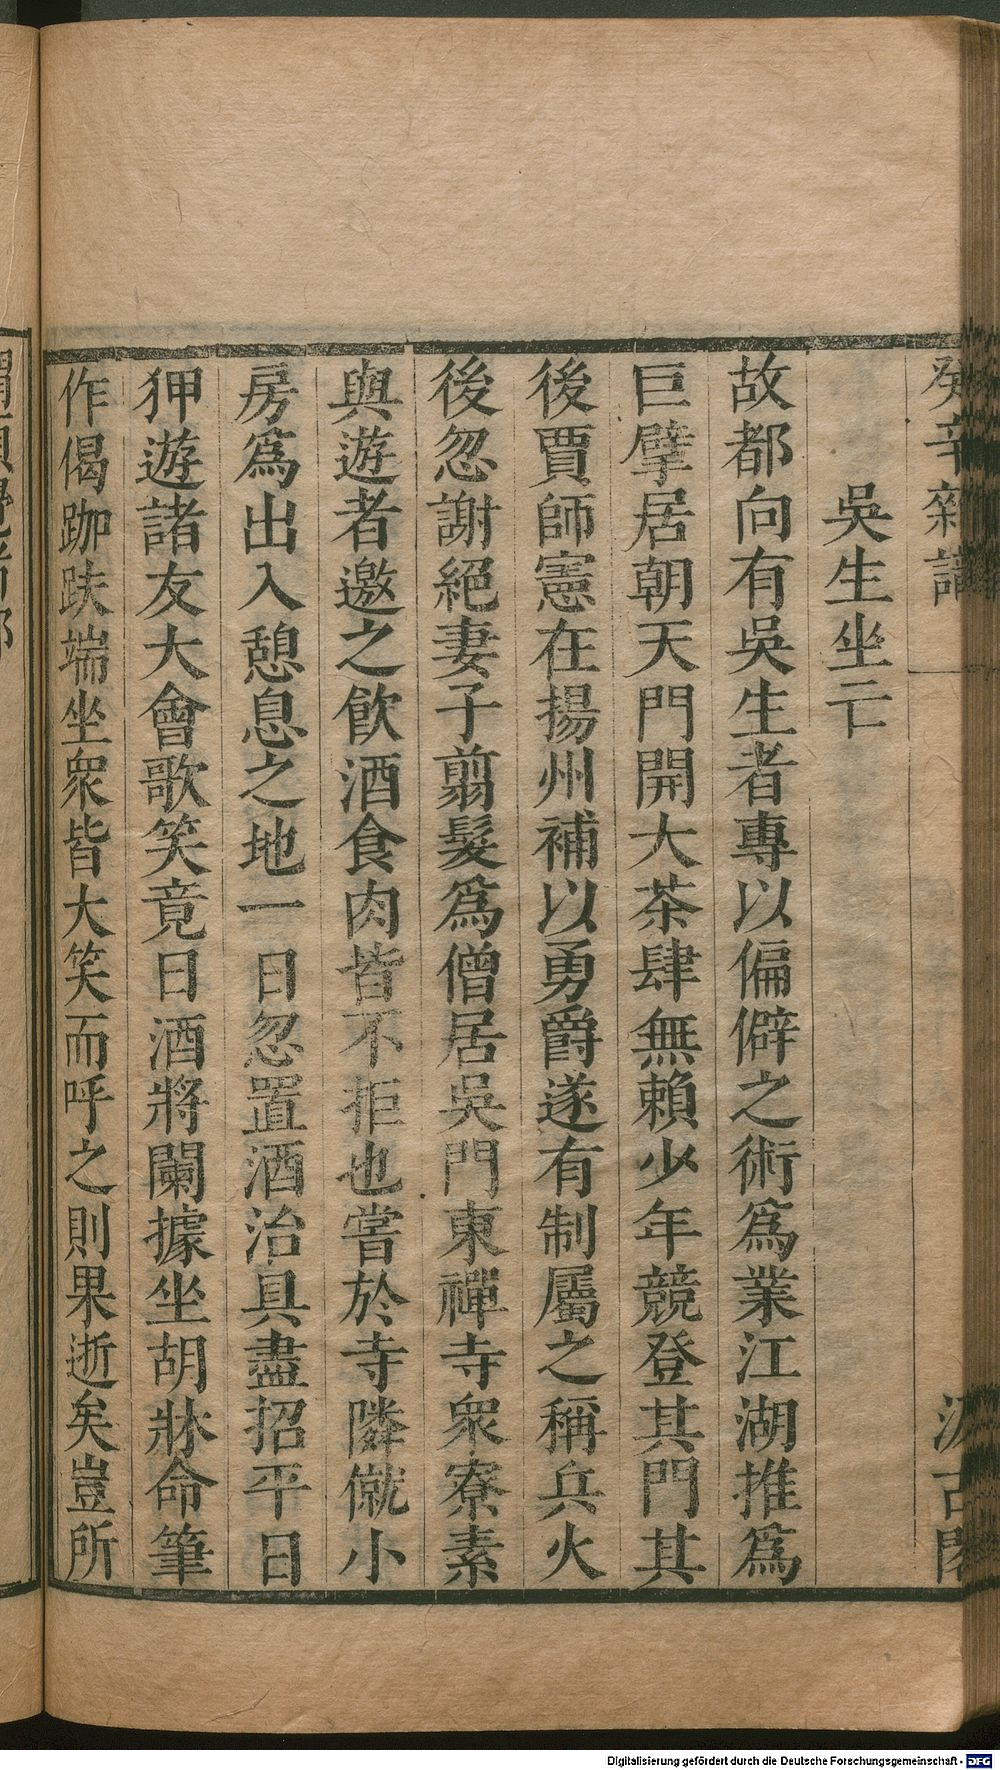 癸辛雜識
汲古閣
吳生坐亡
故都向有吳生者專以偏僻之術爲業江湖推爲
巨擘居朝天門開大茶肆無賴少年競登其門其
後賈師憲在揚州補以勇爵遂有制屬之稱兵火
後忽謝絕妻子翦髮爲僧居吳門東禪寺衆寮素
與遊者邀之飲酒食肉皆不拒也嘗於寺隣僦小
房爲出入憩息之地一日忽置酒治具盡招平日
狎遊諸友大會歌笑竟日酒將闌據坐胡牀命筆
作偈跏趺端坐衆皆大笑而呼之則果逝矣豈所
Digitalisierung gefördert durch die Deutsche Forschungsgemeinschaft - DFG